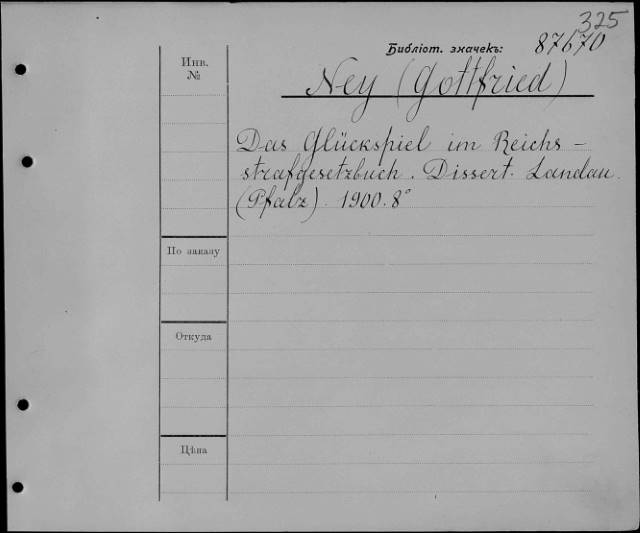 325
Библіот. значекъ: 87670
Инв.
№
Ney (Gottfried)
Das Glückspiel im Reichs-
strafgesetzbuch. Dissert. Landau.
(Pfalz). 1900. 8°
По заказу
Откуда
Цѣна